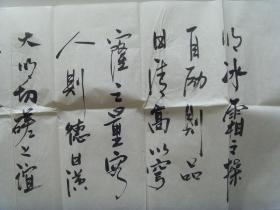 以冰霜之操
自励则品
日清高以穹
窿之量容
人则德日广
大以切磋之谊